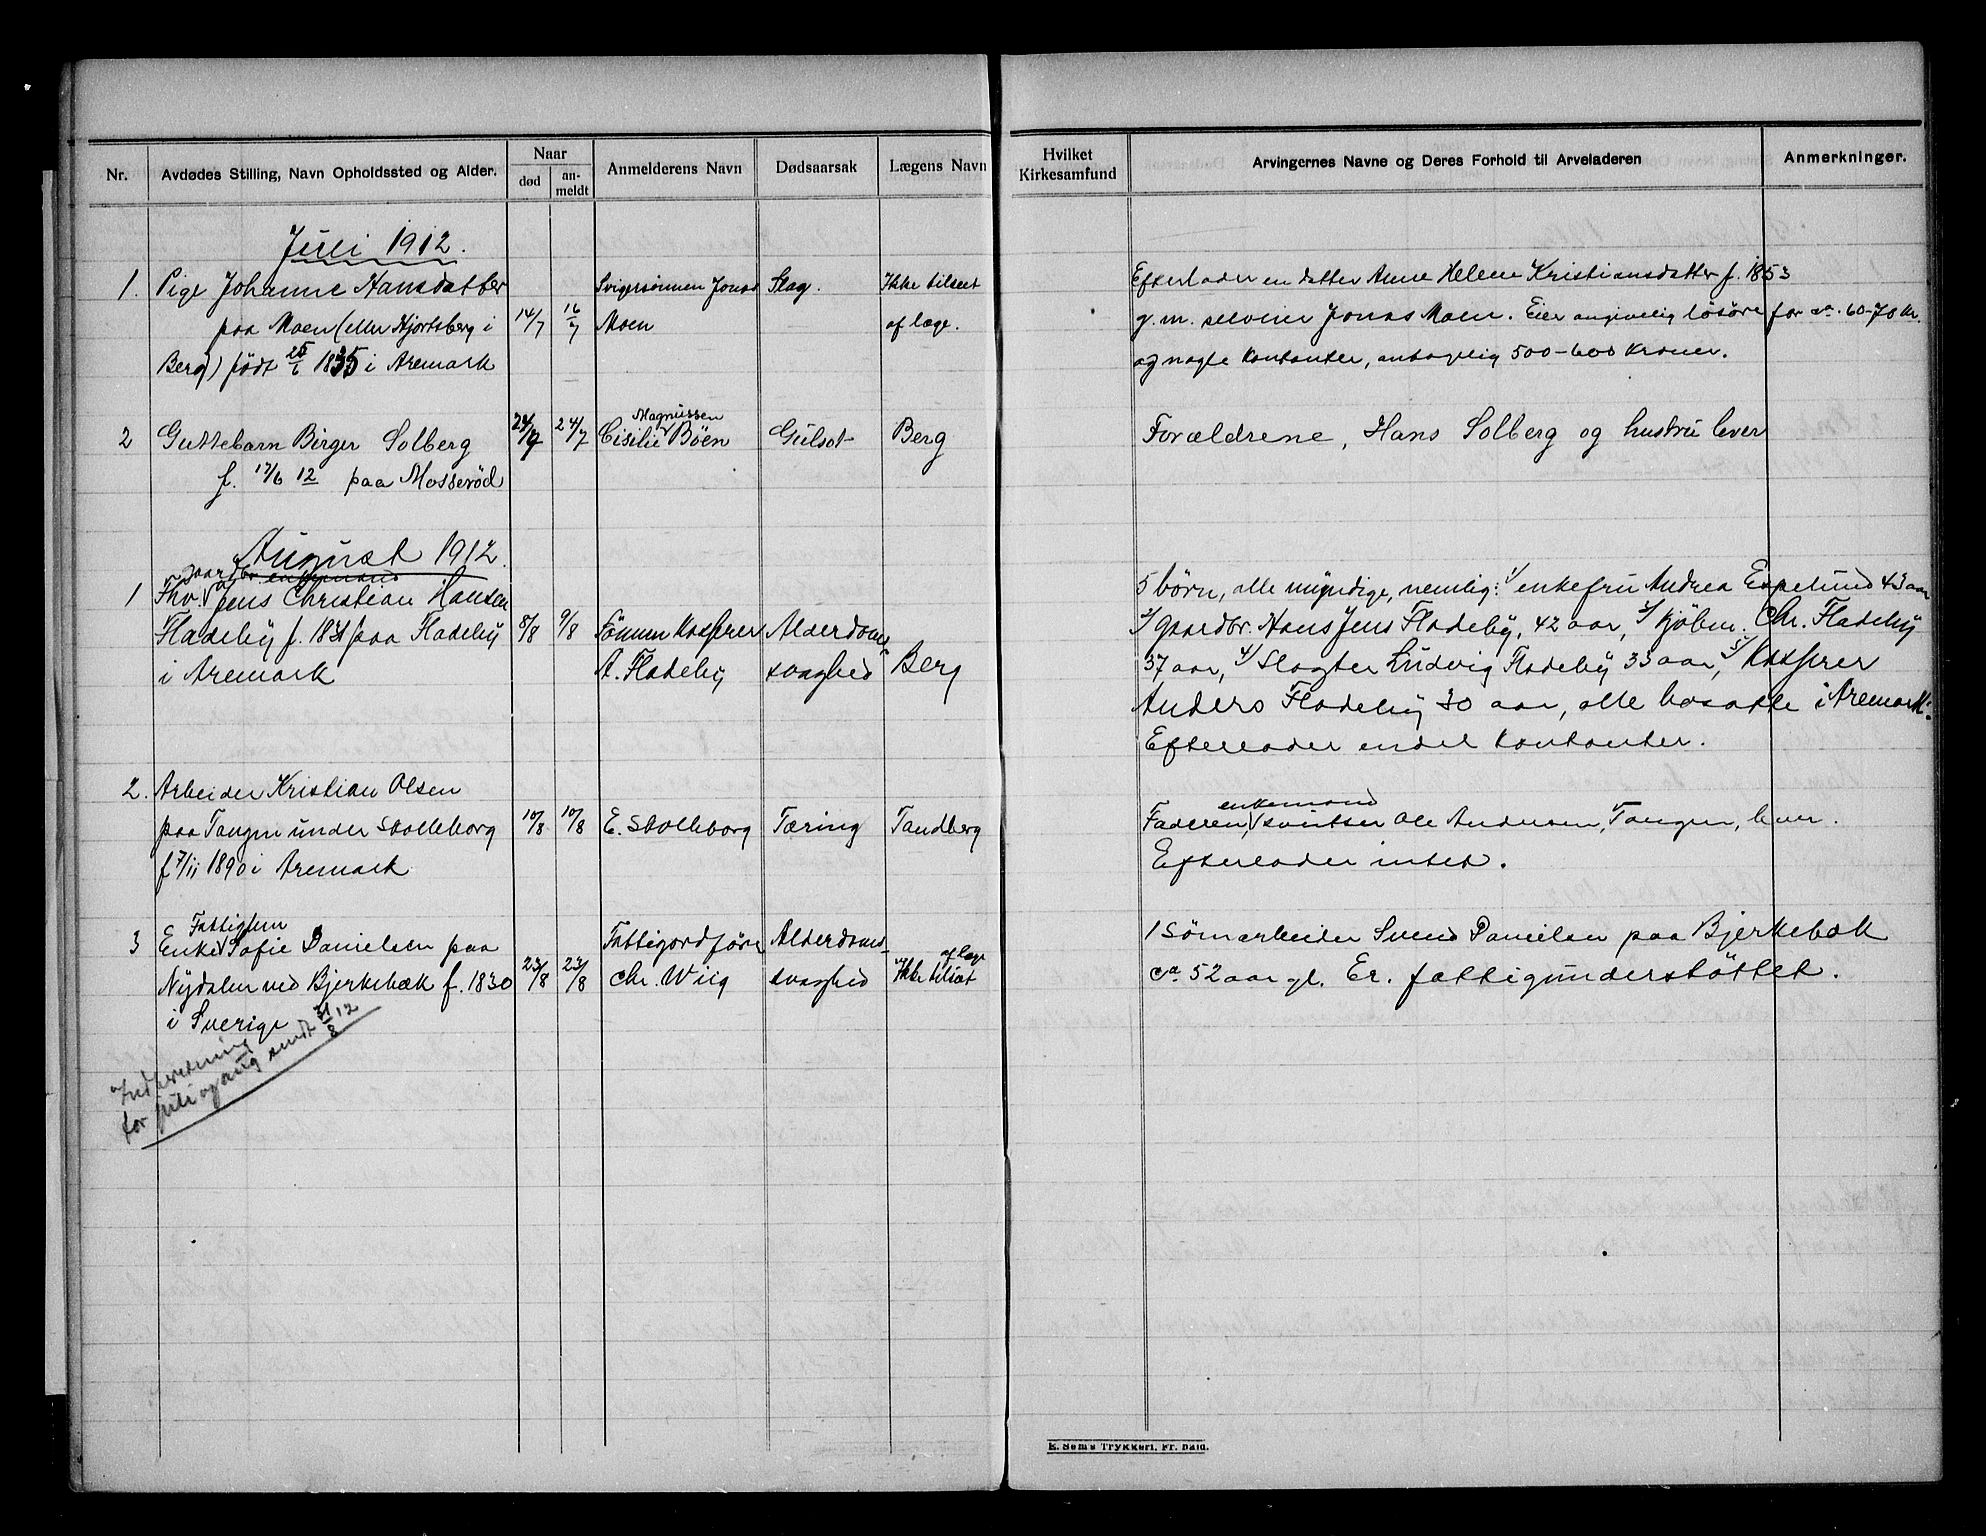 Nr.
Avdødes Stilling, Navn Opholdssted og Alder.
Naar
død
an-
meldt
Anmelderens Navn
Dødsaarsak
Lægens Navn
Hvilket
Kirkesamfund
Arvingernes Navne og Deres Forhold til Arveladeren
Anmerkninger.
Juli 1912.
1. Pige Johanne Hansdatter
paa Moen (eller Hjortsberg i
Berg) født 25/6 1835 i Aremark
14/7
16/7
Svigersønnen Jonas
Moen
Slag.
Ikke tilseet
af læge.
Efterlader en datter Anne Helene Kristiansdatter f. 1853
g. m. selveier Jonas Moen. Eier angivelig løsøre for ca. 60-70 kr.
og nogle kontanter, antagelig 500-600 kroner.
2 Guttebarn Birger Solberg
f. 17/6 12 paa Mosserød
24/7
24/7
Magnussen
Cisilie Bøen
Gulsot
Berg
Forældrene, Hans Solberg og hustru lever
August 1912.
gaardbr. enkemand
1 Fhv. Jens Christian Hansen
Fladeby f. 1831 paa Fladeby
i Aremark
8/8
9/8
Sønnen Kasserer
A. Fladeby
Alderdoms
svaghed
Berg
5 børn, alle myndige, nemlig: 1/ enkefru Andrea Espelund 43 aar
2/ gaardbr. Hans Jens Fladeby, 42 aar, 3/ kjøbm. Chr. Fladeby
37 aar, 4/ Slagter Ludvig Fladeby 33 aar, 5/ Kasserer
Anders Fladeby 30 aar, alle bosatte i Aremark.
Efterlader endel kontanter.
2. Arbeider Kristian Olsen
paa Tangen under Skolleborg
f 7/11 1890 i Aremark
10/8
10/8
E. Skolleborg
Tæring
Tandberg
enkemand
Faderen, svensker Ole Andersen, Tangen, lever.
Efterlader intet.
Fattiglem
3 Enke Sofie Danielsen paa
Nydalen ved Bjerkebæk f. 1830
i Sverige
23/8
23/8
Fattigordfører
Chr. Wiig
Alderdoms-
svaghed
af læge
Ikke tilseet
1 Søn arbeider Svend Danielsen paa Bjerkebæk
ca 52 aar gl. Er fattigunderstøttet.
Indberetning
for juli og aug sendt 31/8 12
E. Sem's Trykkeri, Fr. hald.